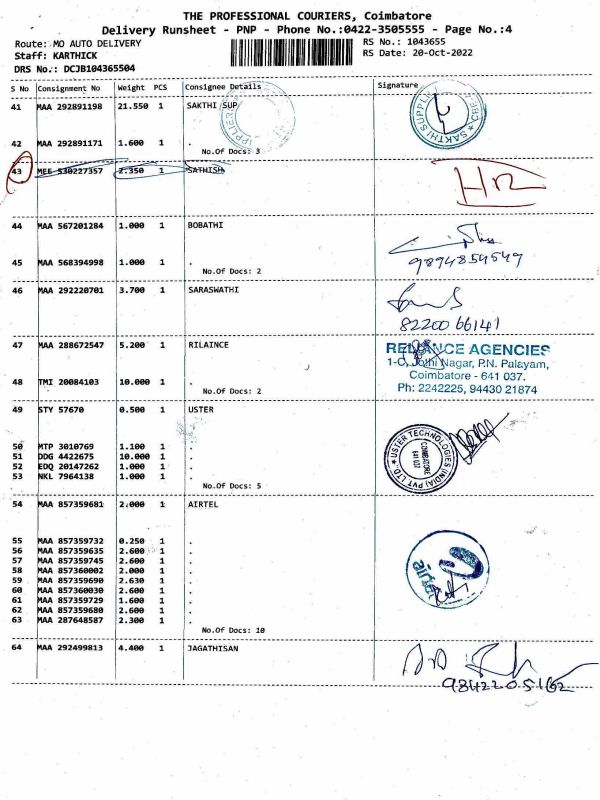 THE PROFESSIONAL COURIERS, Coimbatore
Delivery Runsheet - PNP - Phone No.:0422-3505555 - Page No.:4
Route: MO AUTO DELIVERY
RS No.: 1043655
Staff: KARTHICK
RS Date: 20-Oct-2022
DRS No.: DCJB104365504
S No Consignment No Weight PCS Consignee Details Signature
41 MAA 292891198 21.550 1 SAKTHI SUP
SAKTHI SUPPLIE
42 MAA 292891171 1.600 1 .
No.Of Docs: 3
43 MEE 530227357 2.350 1 SATHISH
44 MAA 567201284 1.000 1 BOBATHI
45 MAA 568394998 1.000 1 .
9894854549
No.Of Docs: 2
46 MAA 292220701 3.700 1 SARASWATHI
82200 66141
47 MAA 288672547 5.200 1 RILAINCE
RELIANCE AGENCIES
1-C, Jothi Nagar, P.N. Palayam,
Coimbatore - 641 037.
Ph: 2242225, 94430 21874
48 TMI 20084103 10.000 1 .
No.Of Docs: 2
49 STY 57670 0.500 1 USTER
USTER TECHNOLOGIES (INDIA) PVT LTD
COIMBATORE
50 MTP 3010769 1.100 1 .
51 DDG 4422675 10.000 1 .
52 EDQ 20147262 1.000 1 .
53 NKL 7964138 1.000 1 .
No.Of Docs: 5
54 MAA 857359681 2.000 1 AIRTEL
55 MAA 857359732 0.250 1 .
56 MAA 857359635 2.600 1 .
57 MAA 857359745 2.600 1 .
58 MAA 857360002 2.000 1 .
59 MAA 857359690 2.630 1 .
60 MAA 857360030 2.600 1 .
61 MAA 857359729 1.600 1 .
62 MAA 857359680 2.600 1 .
63 MAA 287648587 2.300 1 .
airtel
No.Of Docs: 10
64 MAA 292499813 4.400 1 JAGATHISAN
9842205162